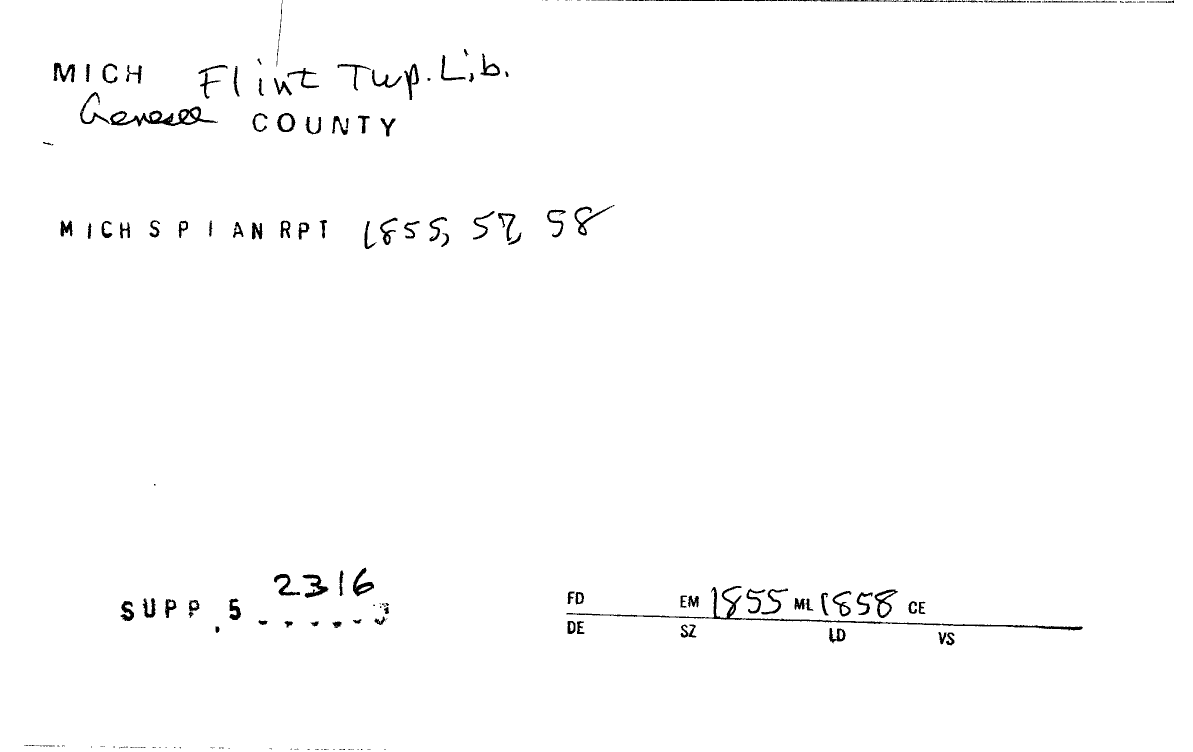 MICH Flint Twp. Lib.
Genesee COUNTY
MICH S P I AN RPT 1855, 57, 58
2316
SUPP. 5
FD EM 1855 ML 1858 CE
DE SZ LD VS